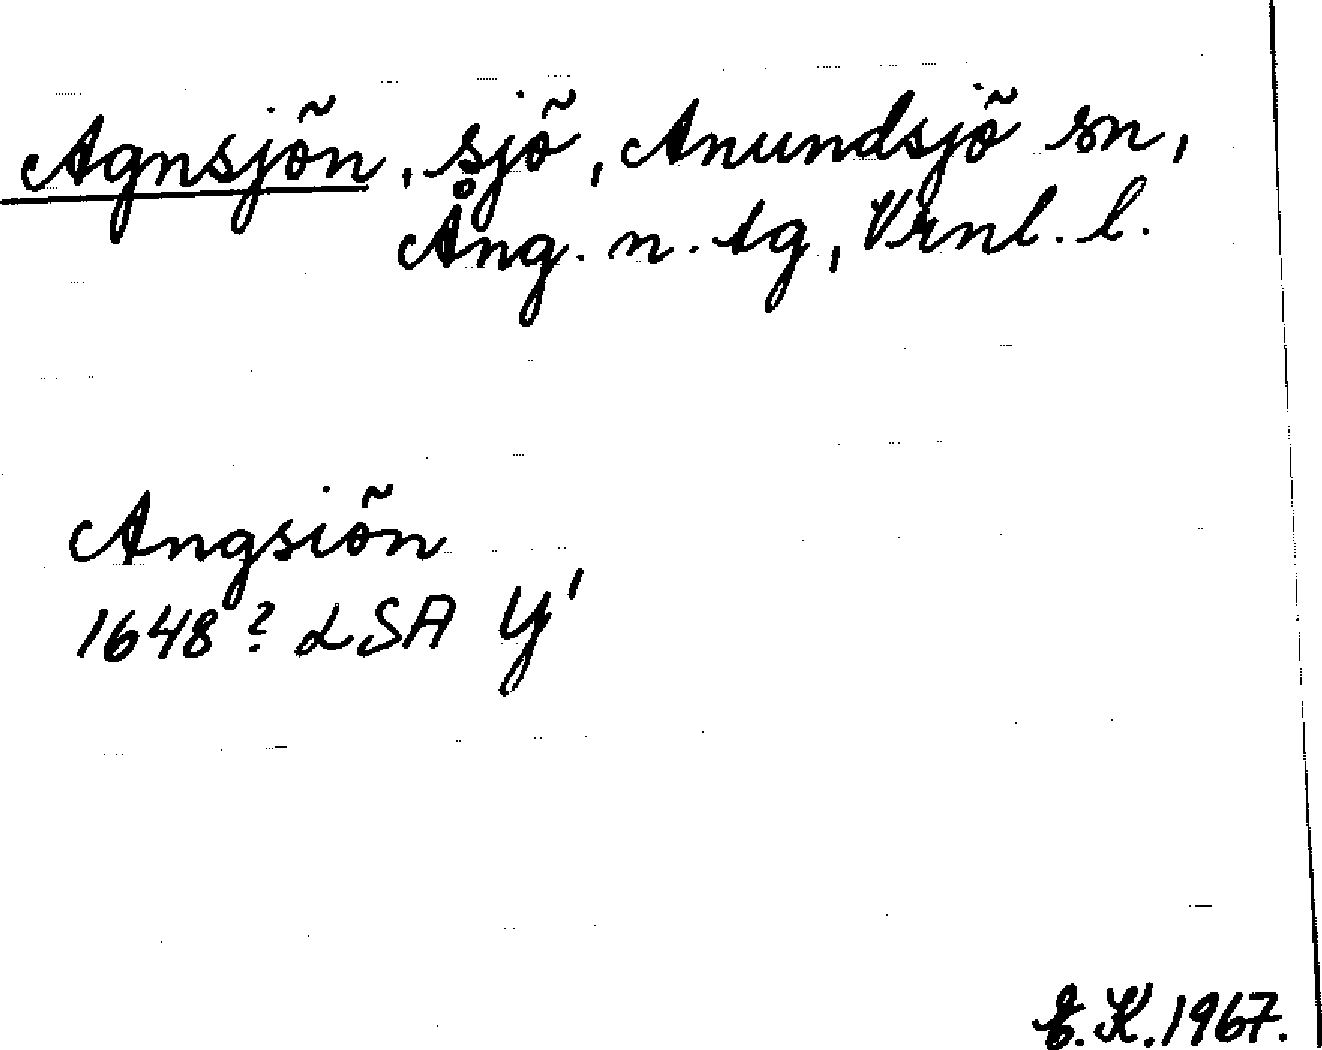 Agnsjön, sjö, Anundsjö sn,
Ång. n. tg, Vrnl. l.
Angsiön
1648? LSA Y'
E.K. 1967.